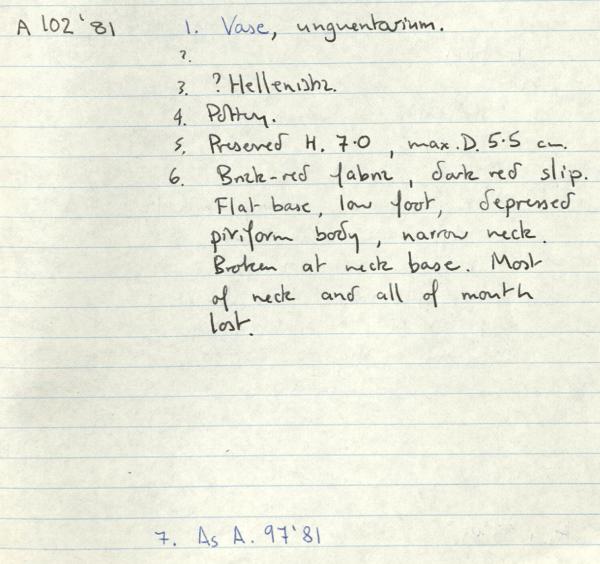 A 102'81 1. Vase, unguentarium.
2.
3. ? Hellenistic.
4. Pottery.
5. Preserved H. 7.0, max. D. 5.5 cm.
6. Brick-red fabric, dark red slip.
Flat base, low foot, depressed
piriform body, narrow neck.
Broken at neck base. Most
of neck and all of mouth
lost.
7. As A. 97'81